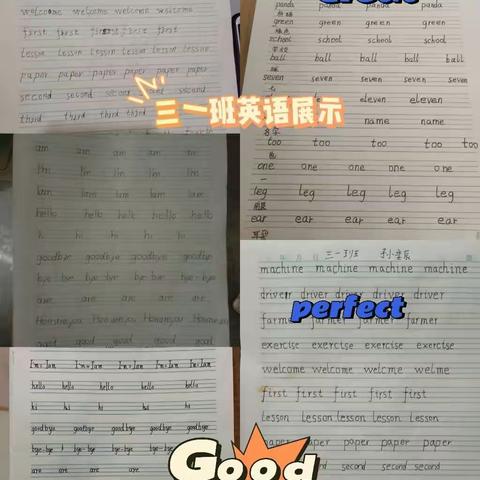 welcome welcome welcome welcome
first first first first first
lesson lesson lesson lesson lesson lesson
paper paper paper paper paper paper
second second second second second
third third third third
三一班英语展示
am am am am am
I'm I'm I'm I'm I'm
Iam Iam Iam Iam Iam
hello hello hello hello hello
hi hi hi hi hi
goodbye goodbye goodbye goodbye goodbye
bye bye-bye bye-bye bye-bye
are are are are are
Howareyou Howareyou Howareyou Howareyou
good good good good good
I'm=Iam I'm=Iam I'm=Iam I'm=Iam I'm=Iam
hello hello hello hello hello
hi hi hi hi hi
goodbye goodbye goodbye goodbye goodbye
bye-bye bye-bye bye-bye bye-bye bye-bye
are are are are are
panda panda panda panda
熊猫
green green green green
绿色
school school school school
学校
ball ball ball ball ball
球
seven seven seven seven
七
eleven eleven
name name
名字
too too too too too
也
one one one one one
一
leg leg leg leg leg
腿
ear ear ear ear ear
耳朵
三一班
machine machine machine machine
driver driver driver driver driver
farmer farmer farmer farmer
perfect
exercise exercise exercise exercise
welcome welcome welcme welme
first first first first first
Lesson Lesson Lesson Lesson Lesson
paper paper paper paper paper
second second second
Good